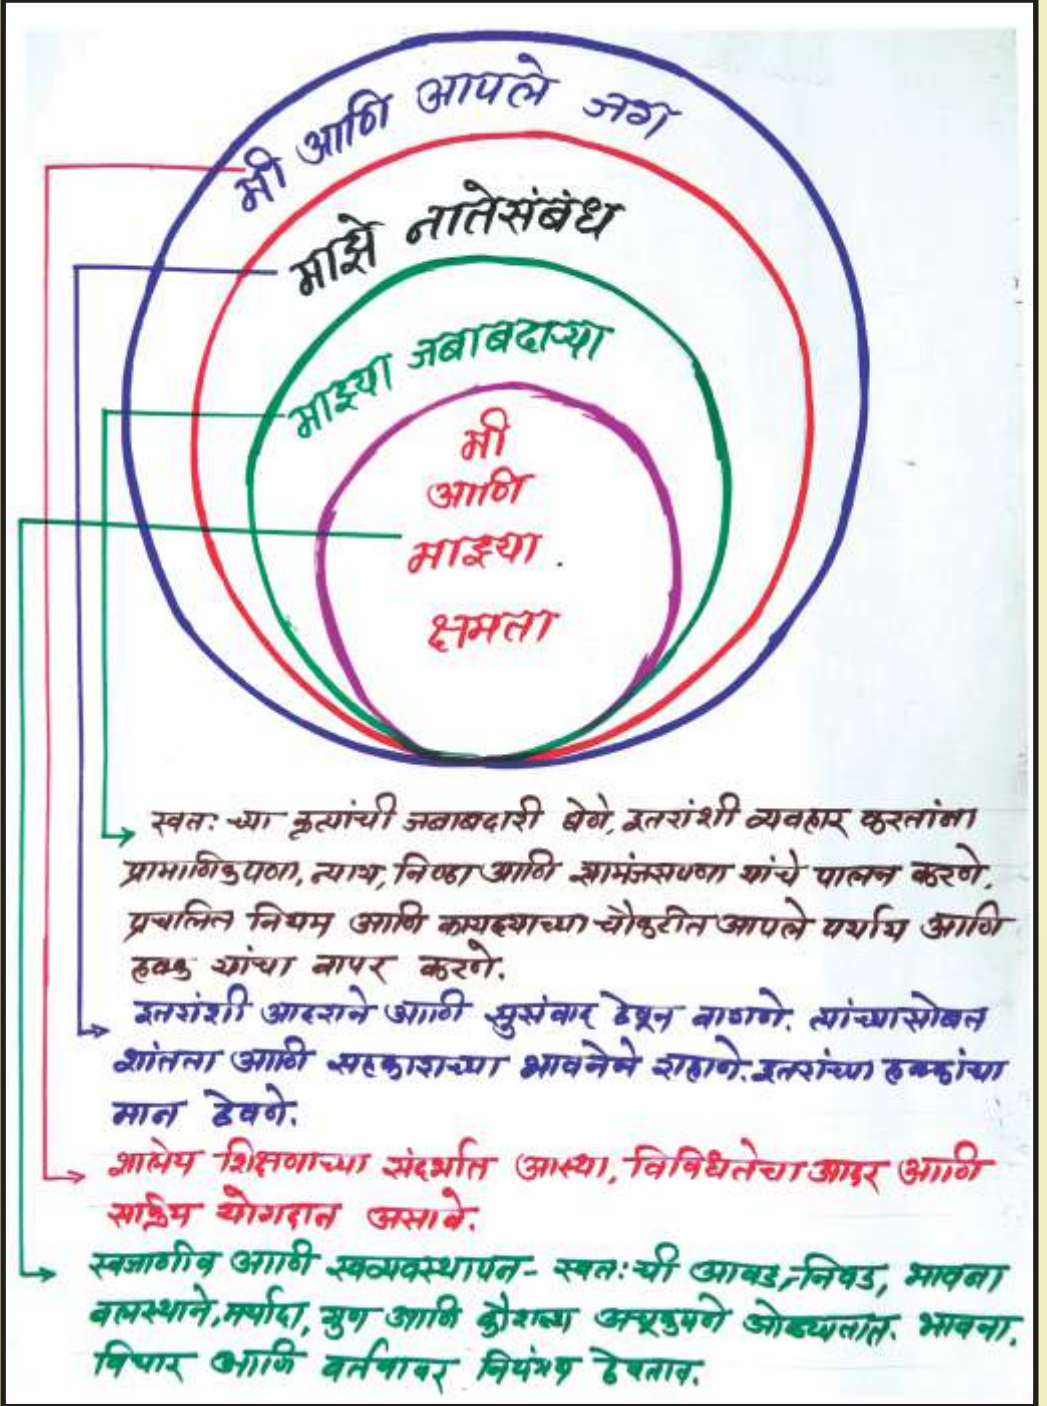 मी आणि आपले जग
माझे नातेसंबंध
माझ्या जबाबदाऱ्या
मी
आणि
माझ्या .
क्षमता
स्वतः च्या कृत्यांची जबाबदारी घेणे, इतरांशी व्यवहार करतांना
प्रामाणिकपणा, न्याय, निष्ठा आणि सामंजसपणा यांचे पालन करणे.
प्रचलित नियम आणि कायद्याच्या चौकटीत आपले पर्याय आणि
हक्क यांचा वापर करणे.
इतरांशी आदराने आणि सुसंवाद ठेवून वागणे. त्यांच्यासोबत
शांतता आणि सहकाराच्या भावनेने राहाणे. इतरांच्या हक्कांचा
मान ठेवणे.
शालेय शिक्षणाच्या संदर्भात आस्था, विविधतेचा आदर आणि
सक्रिय योगदान असावे.
स्वजाणीव आणि स्वव्यवस्थापन - स्वतः ची आवड, निवड, भावना
बलस्थाने, मर्यादा, गुण आणि कौशल्य अचूकपणे ओळखतात. भावना,
विचार आणि वर्तनावर नियंत्रण ठेवतात.